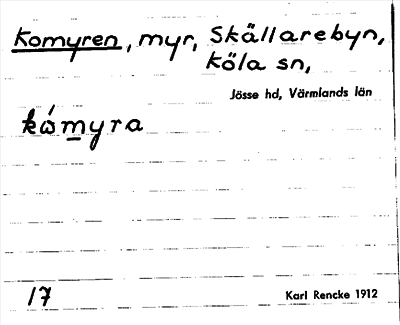 Komyren, myr, Skällarebyn,
köla sn,
Jösse hd, Värmlands län
kómyra
17
Karl Rencke 1912